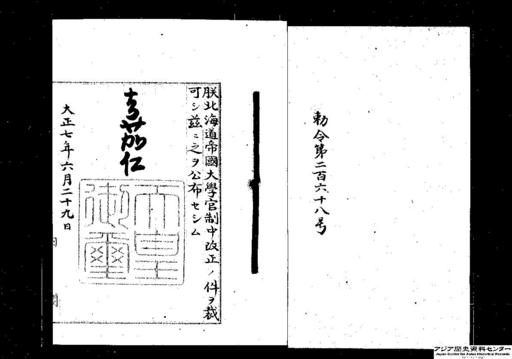 勅令第二百六十八号
朕北海道帝國大學官制中改正ノ件ヲ裁
可シ茲ニ之ヲ公布セシム
嘉仁
天皇御璽
大正七年六月二十九日
アジア歴史資料センター
Japan Center for Asian Historical Records